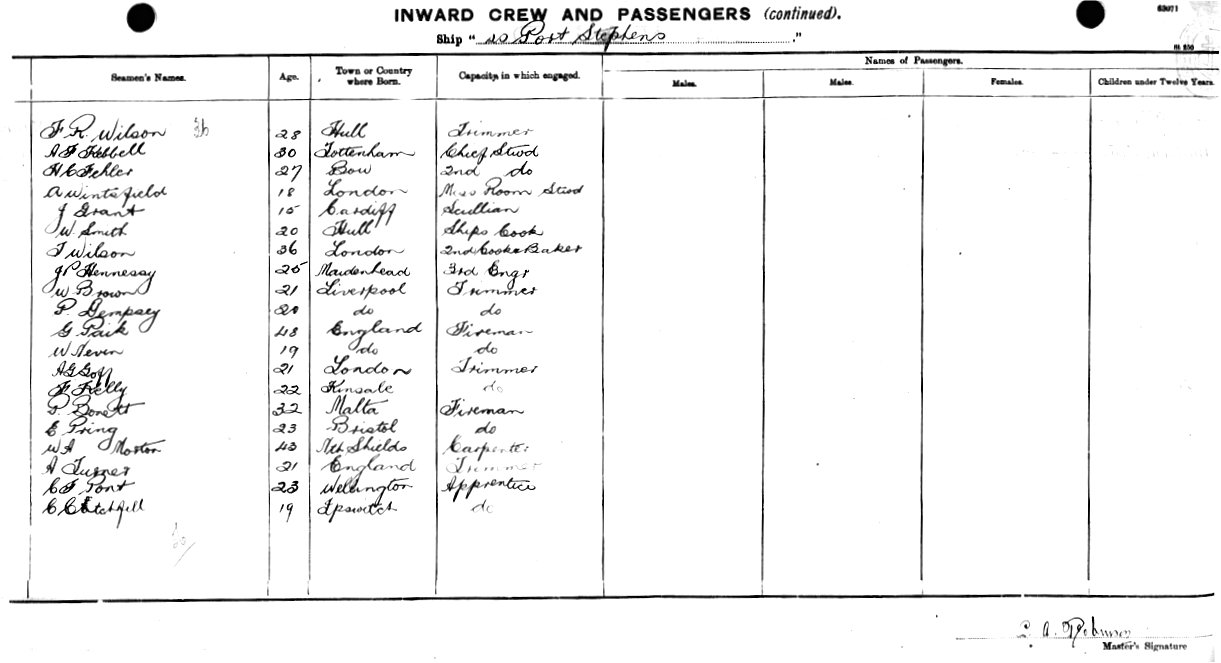 63071
INWARD CREW AND PASSENGERS (continued).
Ship " ss Port Stephens ."
Seamen's Names. Age. Town or Country where Born. Capacity in which engaged. Names of Passengers.
Males. Males. Females. Children under Twelve Years.
F. R. Wilson 28 Hull Trimmer
A F Kebbell 30 Tottenham Chief Stwd
H C Fehler 27 Bow 2nd do
A Wintsfield 18 London Mess Room Stwd
J Grant 15 Cardiff Scullian
W. Smith 20 Hull Ships Cook
T Wilson 36 London 2nd Cook & Baker
J P Hennessy 25 Maidenhead 3rd Engr
W Brown 21 Liverpool Trimmer
P Dempsey 20 do do
G Paik 48 England Fireman
W Neven 19 do do
A G Goff 21 London Trimmer
F Kelly 22 Kinsale do
P. Bonett 32 Malta Fireman
E Pring 23 Bristol do
W A Morton 43 Nth Shields Carpenter
A Turner 21 England Trimmer
C F Pont 23 Wellington Apprentice
C 19 Ipswitch do
A. Robinson
Master's Signature